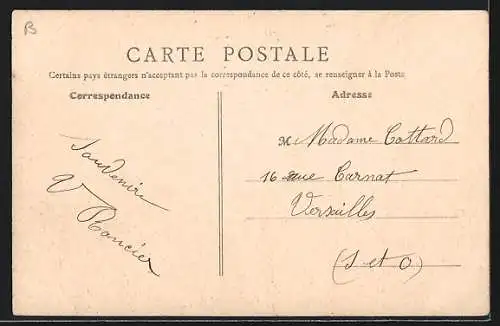 B
CARTE POSTALE
Certains pays étrangers n'acceptant pas la correspondance de ce côté, se renseigner à la Poste
Correspondance
Adresse
Souvenirs
V Rancier
M Madame Cottard
16 rue Carnot
Versailles
(S et O)